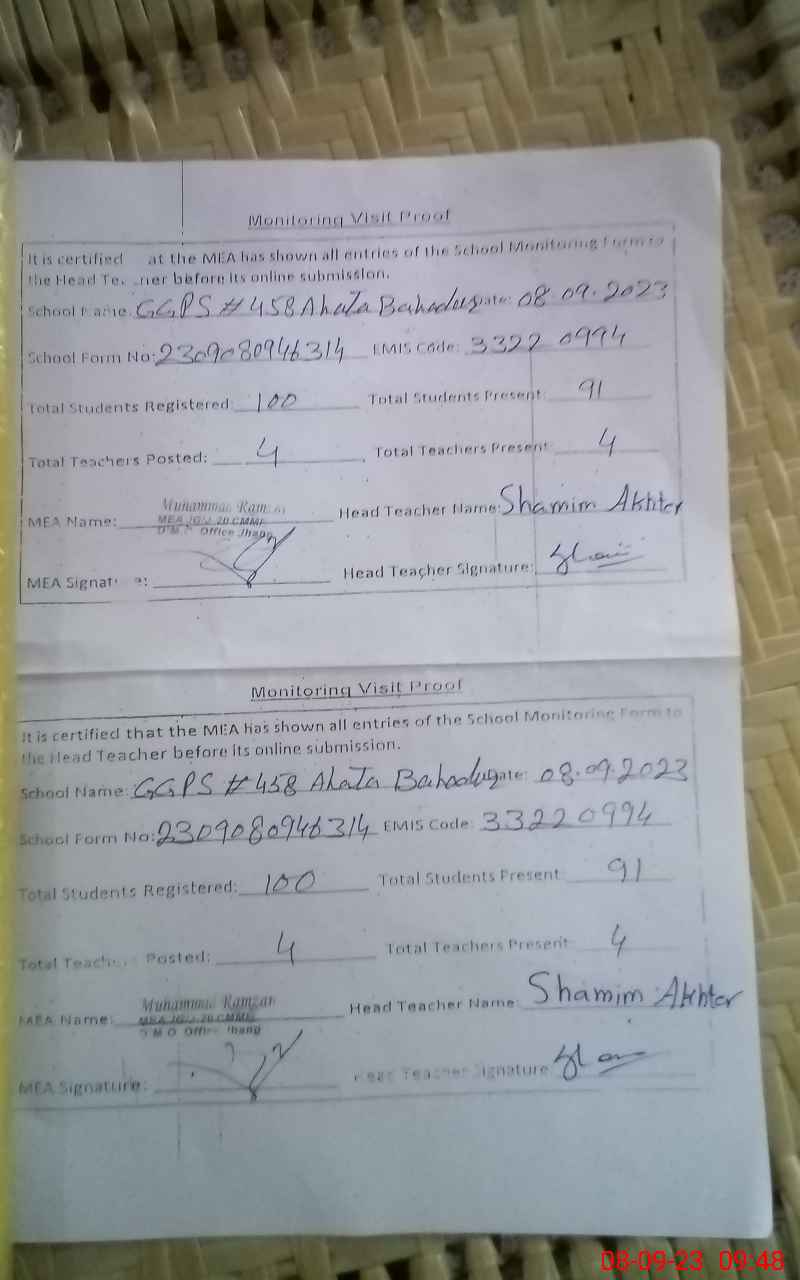 Monitoring Visit Proof
It is certified at the MEA has shown all entries of the School Monitoring Form to
the Head Te. .ner before its online submission.
School Name: GGPS # 458 Ahata Bahadur ate: 08.09.2023
School Form No: 2309080946314 EMIS Code: 33220994
Total Students Registered: 100 Total Students Present: 91
Total Teachers Posted: 4 Total Teachers Present: 4
MEA Name: Muhammad Ramzan Head Teacher Name: Shamim Akhter
Office Jhang
MEA Signat e: Head Teacher Signature:
Monitoring Visit Proof
It is certified that the MEA has shown all entries of the School Monitoring Form to
the Head Teacher before its online submission.
School Name: GGPS # 458 Ahata Bahadur ate: 08.09.2023
School Form No: 2309080946314 EMIS Code: 33220994
Total Students Registered: 100 Total Students Present 91
Total Teache Posted: 4 Total Teachers Present: 4
MEA Name: Muhammad Ramzan Head Teacher Name: Shamim Akhter
D.M.O Office Jhang
MEA Signature: Head Teacher Signature
08-09-23 09:48